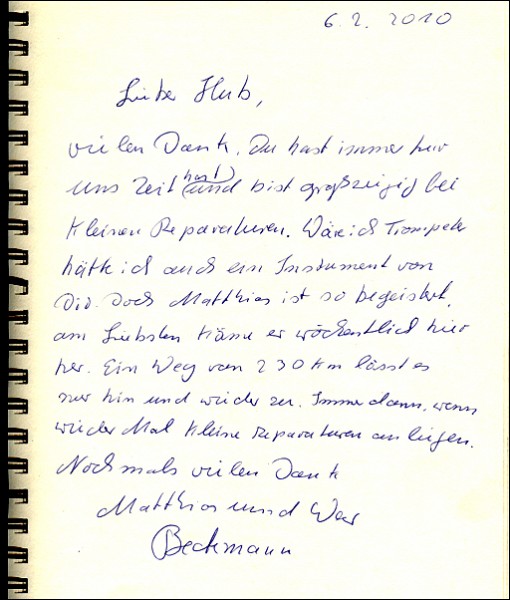 6.2. 2010
Lieber Hub,
vielen Dank. Du hast immer für
uns Zeit (hast) und bist großzügig bei
kleinen Reparaturen. Wäre ich Trompeter
hätte ich auch ein Instrument von
Dir. Doch Matthias ist so begeistert,
am Liebsten käme er wöchentlich hier
her. Ein Weg von 230 km lässt es
nur hin und wieder zu. Immer dann, wenn
wieder Mal kleine Reparaturen anliegen.
Nochmals vielen Dank
Matthias und
Beckmann